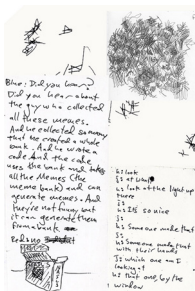 Blue: Did you hear?
Did you hear about
the guy who collected
all these memes.
And he collected so many
that he created a whole
bank. And he wrote a
code And the code
uses the bank and takes
all the Memes (the
meme bank) and can
generate memes. And
they're not funny but
it can generate them
from a bank.
Red: no
h: look
j: at what
h: look at the light up
there
j:
h: It's so nice
j:
h: Someone made that
j:
h: Someone made that
with their hands
j: which one am I
looking at
h: that one, by the
window